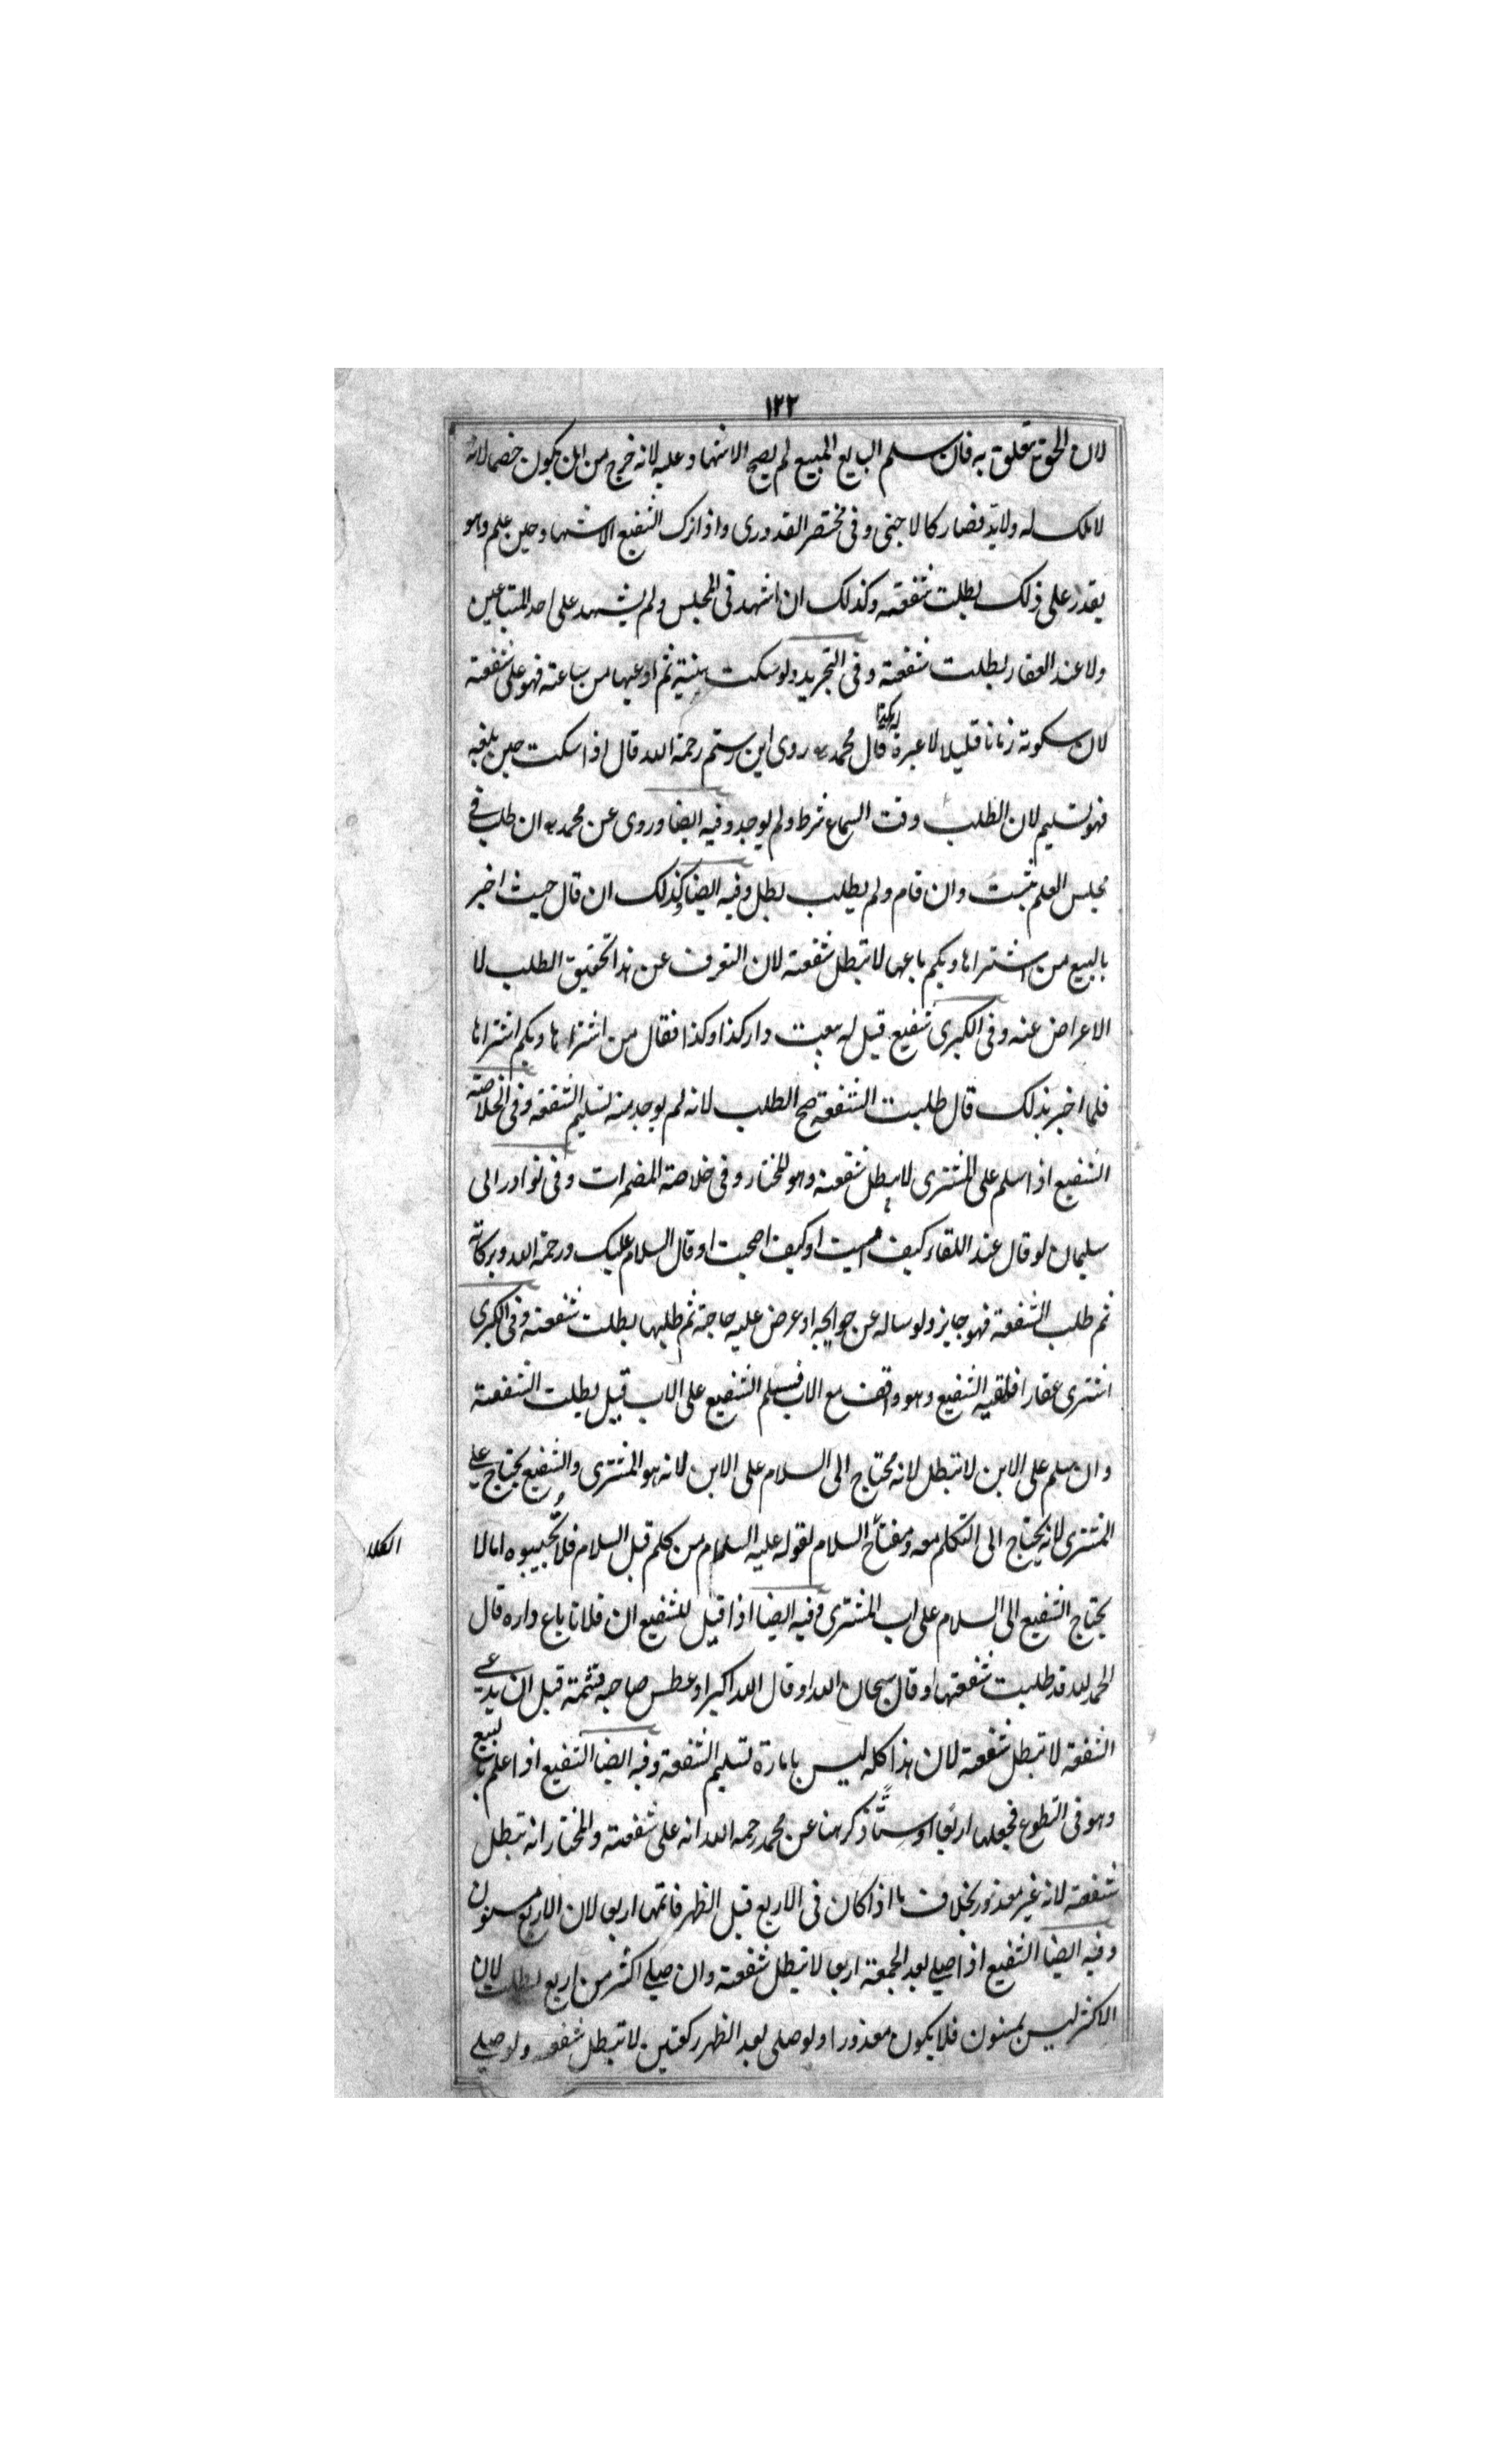 ١٢٢
لان الحق متعلق به فان سلم البايع المبيع لم يصح الاشهاد عليه لانه خرج من ان يكون خصما لانه
لا ملك له ولا يد فصار كالاجنبى وفى مختصر القدورى واذا ترك الشفيع الاشهاد حين علم وهو
يقدر على ذلك بطلت شفعته وكذلك ان اشهد فى المجلس ولم يشهد على احد المتبايعين
ولا عند العقار بطلت شفعته وفى التجريد ولو سكت هنية ثم ادعيها من ساعته فهو على شفعته
لان سكوته زمانا قليلا لا عبرة قال محمد روى ابن رستم رحمة الله قال اذا سكت حين بلغه
فهو تسليم لان الطلب وقت السماع شرط ولم يوجد وفيه ايضا وروى عن محمد ان طلب فى
مجلس العلم تثبت وان قام ولم يطلب بطل وفيه ايضا وكذلك ان قال حيث اخبر
بالبيع من اشتراها وبكم باعها لا تبطل شفعته لان التعرف عن هذا تحقيق الطلب لا
الاعراض عنه وفى الكبرى شفيع قيل له بيعت دار كذا وكذا فقال من اشتراها وبكم اشتراها
فلما اخبر بذلك قال طلبت الشفعة صح الطلب لانه لم يوجد منه تسليم الشفعة وفى الخلاصة
الشفيع اذا سلم على المشترى لا يبطل شفعته وهو المختار وفى خلاصة المضمرات وفى نوادر ابى
سليمان لو قال عند اللقاء كيف امسيت او كيف اصبحت او قال السلام عليك ورحمة الله وبركاته
ثم طلب الشفعة فهو جايز ولو ساله عن حوايجه او عرض عليه حاجة ثم طلبها بطلت شفعته وفى الكبرى
اشترى عقارا فلقيه الشفيع وهو واقف مع الاب فسلم الشفيع على الاب قيل بطلت الشفعة
وان سلم على الابن لا تبطل لانه محتاج الى السلام على الابن لانه هو المشترى والشفيع يحتاج على
المشترى لانه يحتاج الى التكلم معه ومفتاح السلام لقوله عليه السلام من كلم قبل السلام فلا تجيبوه اما لا
الكلام
يحتاج الشفيع الى السلام على اب المشترى وفيه ايضا اذا قيل للشفيع ان فلانا باع داره قال
الحمد لله قد طلبت شفعتها او قال سبحان الله او قال الله اكبر او عطس صاحبه فشمته قبل ان يدعى
الشفعة لا تبطل شفعته لان هذا كله ليس بامارة تسليم الشفعة وفيه ايضا الشفيع اذا علم بالبيع
وهو فى التطوع فجعلها اربعا او ستا ذكر هنا عن محمد رحمه الله انه على شفعته والمختار انه تبطل
شفعته لانه غير معذور بخلاف ما اذا كان فى الاربع قبل الظهر فاتمها اربعا لان الاربع مسنون
وفيه ايضا الشفيع اذا صلى بعد الجمعة اربعا لا تبطل شفعته وان صلى اكثر من اربع بطلت لان
الاكثر ليس بمسنون فلا يكون معذورا ولو صلى بعد الظهر ركعتين لا تبطل شفعته ولو صلى